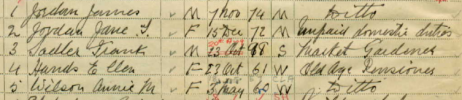 1 Jordan James M 7 Nov 74 M Ditto
2 Jordan Jane S. F 15 Dec 72 M Unpaid domestic duties
3 Sadler Frank M 23 Oct 98 S Market Gardener
4 Hands Ellen F 23 Oct 61 W Old Age Pensioner
5 Wilson Annie M F May 60 W Ditto